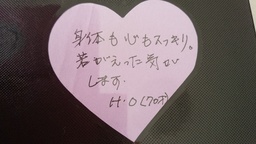 身体も心もスッキリ。
若がえった気が
します。
H.O(70才)